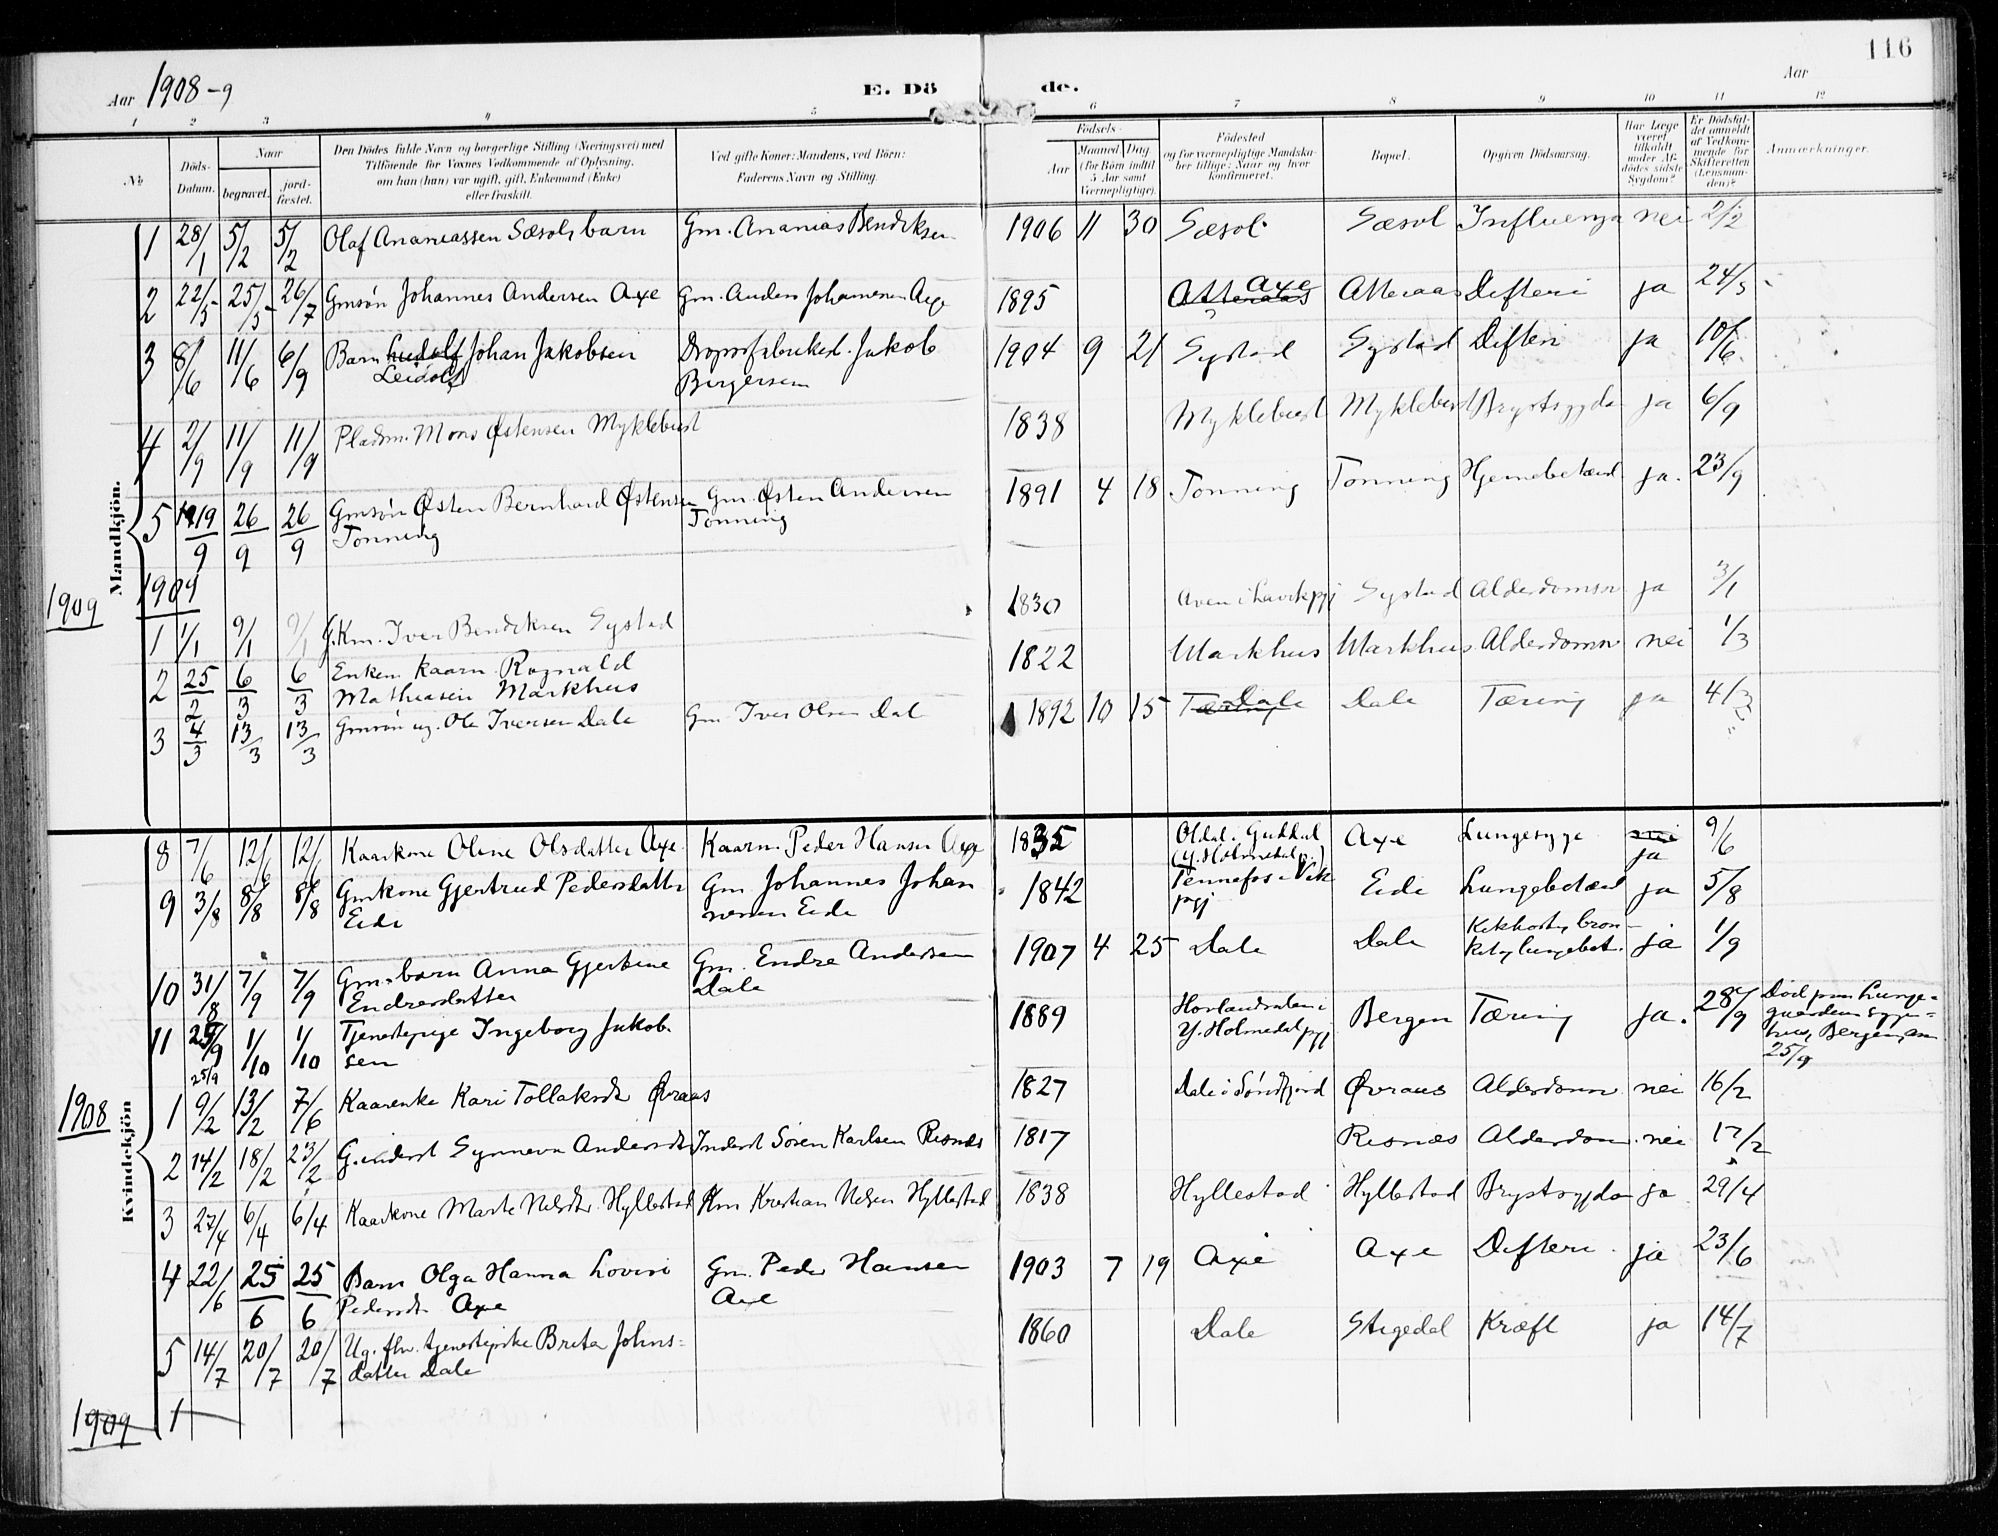 116
Aar 1908-9
E. Dö de.
Aar
1 2 3 4 5 6 7 8 9 10 11 12
No
Döds-Datum.
Naar
begravet.
jord-fæstet.
Den Dödes fulde Navn og borgerlige Stilling (Næringsvei) med
Tilföiende for Voxnes Vedkommende af Oplysning,
om han (hun) var ugift, gift, Enkemand (Enke)
eller fraskilt.
Ved gifte Koner: Mandens, ved Börn:
Faderens Navn og Stilling.
Födsels-
Aar
Maaned Dag
(for Börn indtil
5 Aar samt
Værnepligtige).
Födested
og for værnepligtige Mandska-
ber tillige: Naar og hvor
konfirmeret.
Bopæl.
Opgiven Dödsaarsag.
Har Læge
været
tilkaldt
under Af-
dödes sidste
Sygdom?
Er Dödsfal-
det anmeldt
af Vedkom-
mende for
Skifteretten
(Lensman-
den)?
Anmærkninger.
Mandkjön.
1 28/1 5/2 5/2 Olaf Ananiassen Sæsol, barn Gm. Ananias Bendiksen 1906 11 30 Sæsol Sæsol Influenza nei 2/2
2 22/5 25/5 26/7 Gmsøn Johannes Andersen Axe Gm. Anders Johannesen Axe 1895 Atteraas Axe Atteraas Difteri ja 24/5
3 8/6 11/6 6/9 Barn Ludolf Johan Jakobsen Dropsfabriked. Jakob 1904 9 21 Systad Systad Difteri ja 10/6
Leidolf Birgersen
4 2/9 11/9 11/9 Pladsm. Mons Østensen Myklebust 1838 Myklebust Myklebust Brystsygdo ja 6/9
5 19/9 26/9 26/9 Gmsøn Østen Bernhard Østensen Gm. Østen Andersen 1891 4 18 Tonning Tonning Hjernebetænd ja. 23/9
Tonning Tonning
1909 1909
1 1/1 9/1 9/1 G.Km. Iver Bendiksen Systad 1830 Systad Alderdomsv ja 3/1
2 25/2 6/3 6/3 Enkem. kaarm. Rognald 1822 Markhus Markhus Alderdomsv nei 1/3
Mathiasen Markhus
3 4/3 13/3 13/3 Gmsøn ug. Ole Iversen Dale Gm. Iver Olsen Dal 1892 10 15 Tæring Dale Dale Tæring ja 4/3
Kvindekjön
8 7/6 12/6 12/6 Kaarkone Oline Olsdatter Axe Kaarm. Peder Hansen Axe 1835 Oldal. Guddal Axe Lungesyge nei 9/6
(Y. Holmedal p.) ja
9 3/8 8/8 8/8 Gmkone Gjertrud Pedersdatter Gm Johannes Johan 1842 Tennefos i Vik Eide Lungebetænd ja 5/8
Eide nesen Eide pgj
10 31/8 7/9 7/9 Gm.barn Anna Gjertine Gm. Endre Andersen 1907 4 25 Dale Dale Kikhoste, bron- ja 1/9
Endresdatter Dale kit og lungebet.
11 25/9 1/10 1/10 Tjenestepige Ingeborg Jakob- 1889 Bergen Tæring ja. 28/9 Død paa Lunge-
25/9 sen Y. Holmedal pgj gaardens syge-
hus, Bergen, den
25/9
1908
1 9/2 13/2 7/6 Kaarenke Kari Tollaksdt Øvraas 1827 Dale i Søndfjord Øvraas Alderdomsv nei 16/2
2 14/2 18/2 23/2 G. inderst Synneva Andersdtr Inderst Søren Karlsen Risnes 1817 Risnæs Alderdom nei 17/2
3 27/4 6/4 6/4 Kaarkone Marte Nilsdtr. Hyllestad Km Kristian Nilsen Hyllestad 1838 Hyllestad Hyllestad Brystsygdo ja 29/4
4 22/6 25/6 25/6 Barn Olga Hanna Lovise Gm. Peder Hansen 1903 7 19 Axe Axe Difteri ja 23/6
Pedersdt Axe Axe
5 14/7 20/7 20/7 Ug. fhv. tjenestepike Brita Johns- 1860 Dale Stigedal Kræft ja 14/7
datter Dale
1909 1